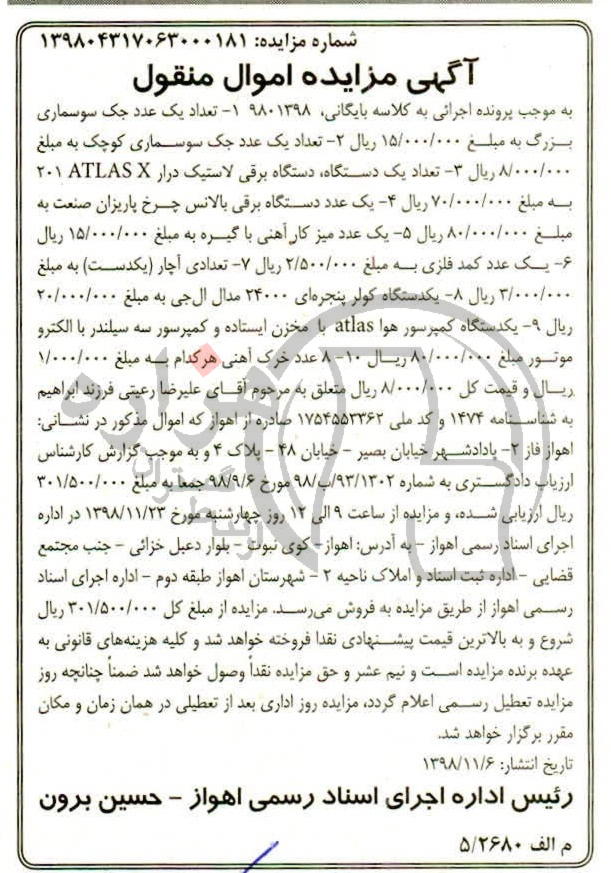 شماره مزایده: ۱۳۹۸۰۴۳۱۷۰۶۳۰۰۰۱۸۱
آگهی مزایده اموال منقول
به موجب پرونده اجرائی به کلاسه بایگانی، ۹۸۰۱۳۹۸ ۱- تعداد یک عدد جک سوسماری
بزرگ به مبلغ ۱۵/۰۰۰/۰۰۰ ریال ۲- تعداد یک عدد جک سوسماری کوچک به مبلغ
۸/۰۰۰/۰۰۰ ریال ۳- تعداد یک دستگاه، دستگاه برقی لاستیک درار ATLAS X ۲۰۱
به مبلغ ۷۰/۰۰۰/۰۰۰ ریال ۴- یک عدد دستگاه برقی بالانس چرخ پاریزان صنعت به
مبلغ ۸۰/۰۰۰/۰۰۰ ریال ۵- یک عدد میز کار آهنی با گیره به مبلغ ۱۵/۰۰۰/۰۰۰ ریال
۶- یک عدد کمد فلزی به مبلغ ۲/۵۰۰/۰۰۰ ریال ۷- تعدادی آچار (یکدست) به مبلغ
۳/۰۰۰/۰۰۰ ریال ۸- یکدستگاه کولر پنجره‌ای ۲۴۰۰۰ مدال ال‌جی به مبلغ ۲۰/۰۰۰/۰۰۰
ریال ۹- یکدستگاه کمپرسور هوا atlas با مخزن ایستاده و کمپرسور سه سیلندر با الکترو
موتور مبلغ ۸۰/۰۰۰/۰۰۰ ریال ۱۰- ۸ عدد خرک آهنی هرکدام به مبلغ ۱/۰۰۰/۰۰۰
ریال و قیمت کل ۸/۰۰۰/۰۰۰ ریال متعلق به مرحوم آقای علیرضا رعیتی فرزند ابراهیم
به شناسنامه ۱۴۷۴ و کد ملی ۱۷۵۴۵۵۳۳۶۲ صادره از اهواز که اموال مذکور در نشانی:
اهواز فاز ۲- پادادشهر خیابان بصیر - خیابان ۴۸ - پلاک ۴ و به موجب گزارش کارشناس
ارزیاب دادگستری به شماره ۹۳/۱۳۰۲/ب/۹۸ مورخ ۹۸/۹/۶ جمعا به مبلغ ۳۰۱/۵۰۰/۰۰۰
ریال ارزیابی شده، و مزایده از ساعت ۹ الی ۱۲ روز چهارشنبه مورخ ۱۳۹۸/۱۱/۲۳ در اداره
اجرای اسناد رسمی اهواز - به آدرس: اهواز- کوی نبوت - بلوار دعبل خزائی - جنب مجتمع
قضایی - اداره ثبت اسناد و املاک ناحیه ۲ - شهرستان اهواز طبقه دوم - اداره اجرای اسناد
رسمی اهواز از طریق مزایده به فروش می‌رسد. مزایده از مبلغ کل ۳۰۱/۵۰۰/۰۰۰ ریال
شروع و به بالاترین قیمت پیشنهادی نقدا فروخته خواهد شد و کلیه هزینه‌های قانونی به
عهده برنده مزایده است و نیم عشر و حق مزایده نقداً وصول خواهد شد ضمناً چنانچه روز
مزایده تعطیل رسمی اعلام گردد، مزایده روز اداری بعد از تعطیلی در همان زمان و مکان
مقرر برگزار خواهد شد.
تاریخ انتشار: ۱۳۹۸/۱۱/۶
رئیس اداره اجرای اسناد رسمی اهواز - حسین برون
م الف ۵/۲۶۸۰